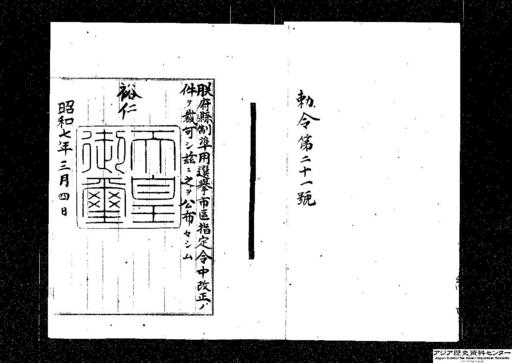 勅令第二十一號
朕府縣制準用選擧市區指定令中改正ノ
件ヲ裁可シ茲ニ之ヲ公布セシム
裕仁
天皇
御璽
昭和七年三月四日
アジア歴史資料センター
Japan Center for Asian Historical Records